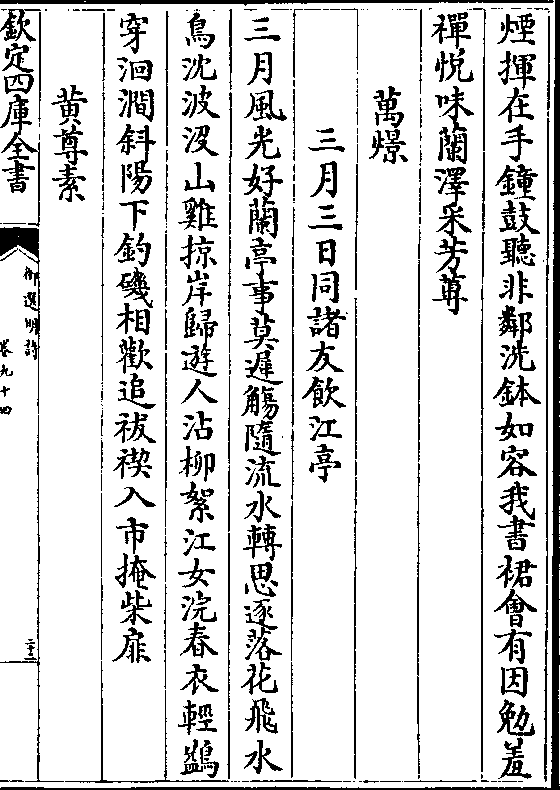 煙揮在手鐘鼓聽非鄰洗鉢如容我書裙會有因勉羞
禪悅味蘭澤采芳蓴
萬燝
三月三日同諸友飲江亭
三月風光好蘭亭事莫遲觴隨流水轉思逐落花飛水
鳥沈波没山雞掠岸歸遊人沾柳絮江女浣春衣輕鷁
穿洄澗斜陽下釣磯相歡追祓禊入市掩柴扉
黄尊素
欽定四庫全書
御選明詩
卷九十四
二十三